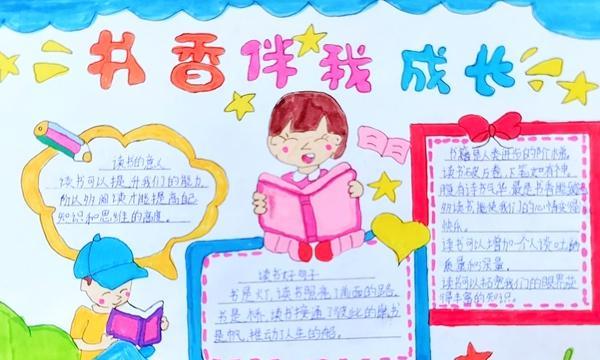 书香伴我成长
读书的意义
读书可以提升我们的能力
所以多阅读才能提高自己
知识和思维的高度。
读书好句子
书是灯,读书照亮了前面的路
书是桥,读书接通了彼此的
是帆,推动了人生的船。
书籍是人类进步的阶梯。
读书破万卷,下笔如有神。
腹有诗书气华 最是书香
多读书,能使我们的心情变得
快乐。
读书可以增加一个人谈吐的
质量和深度。
读书可以拓宽我们的眼界获
得丰富的知识。